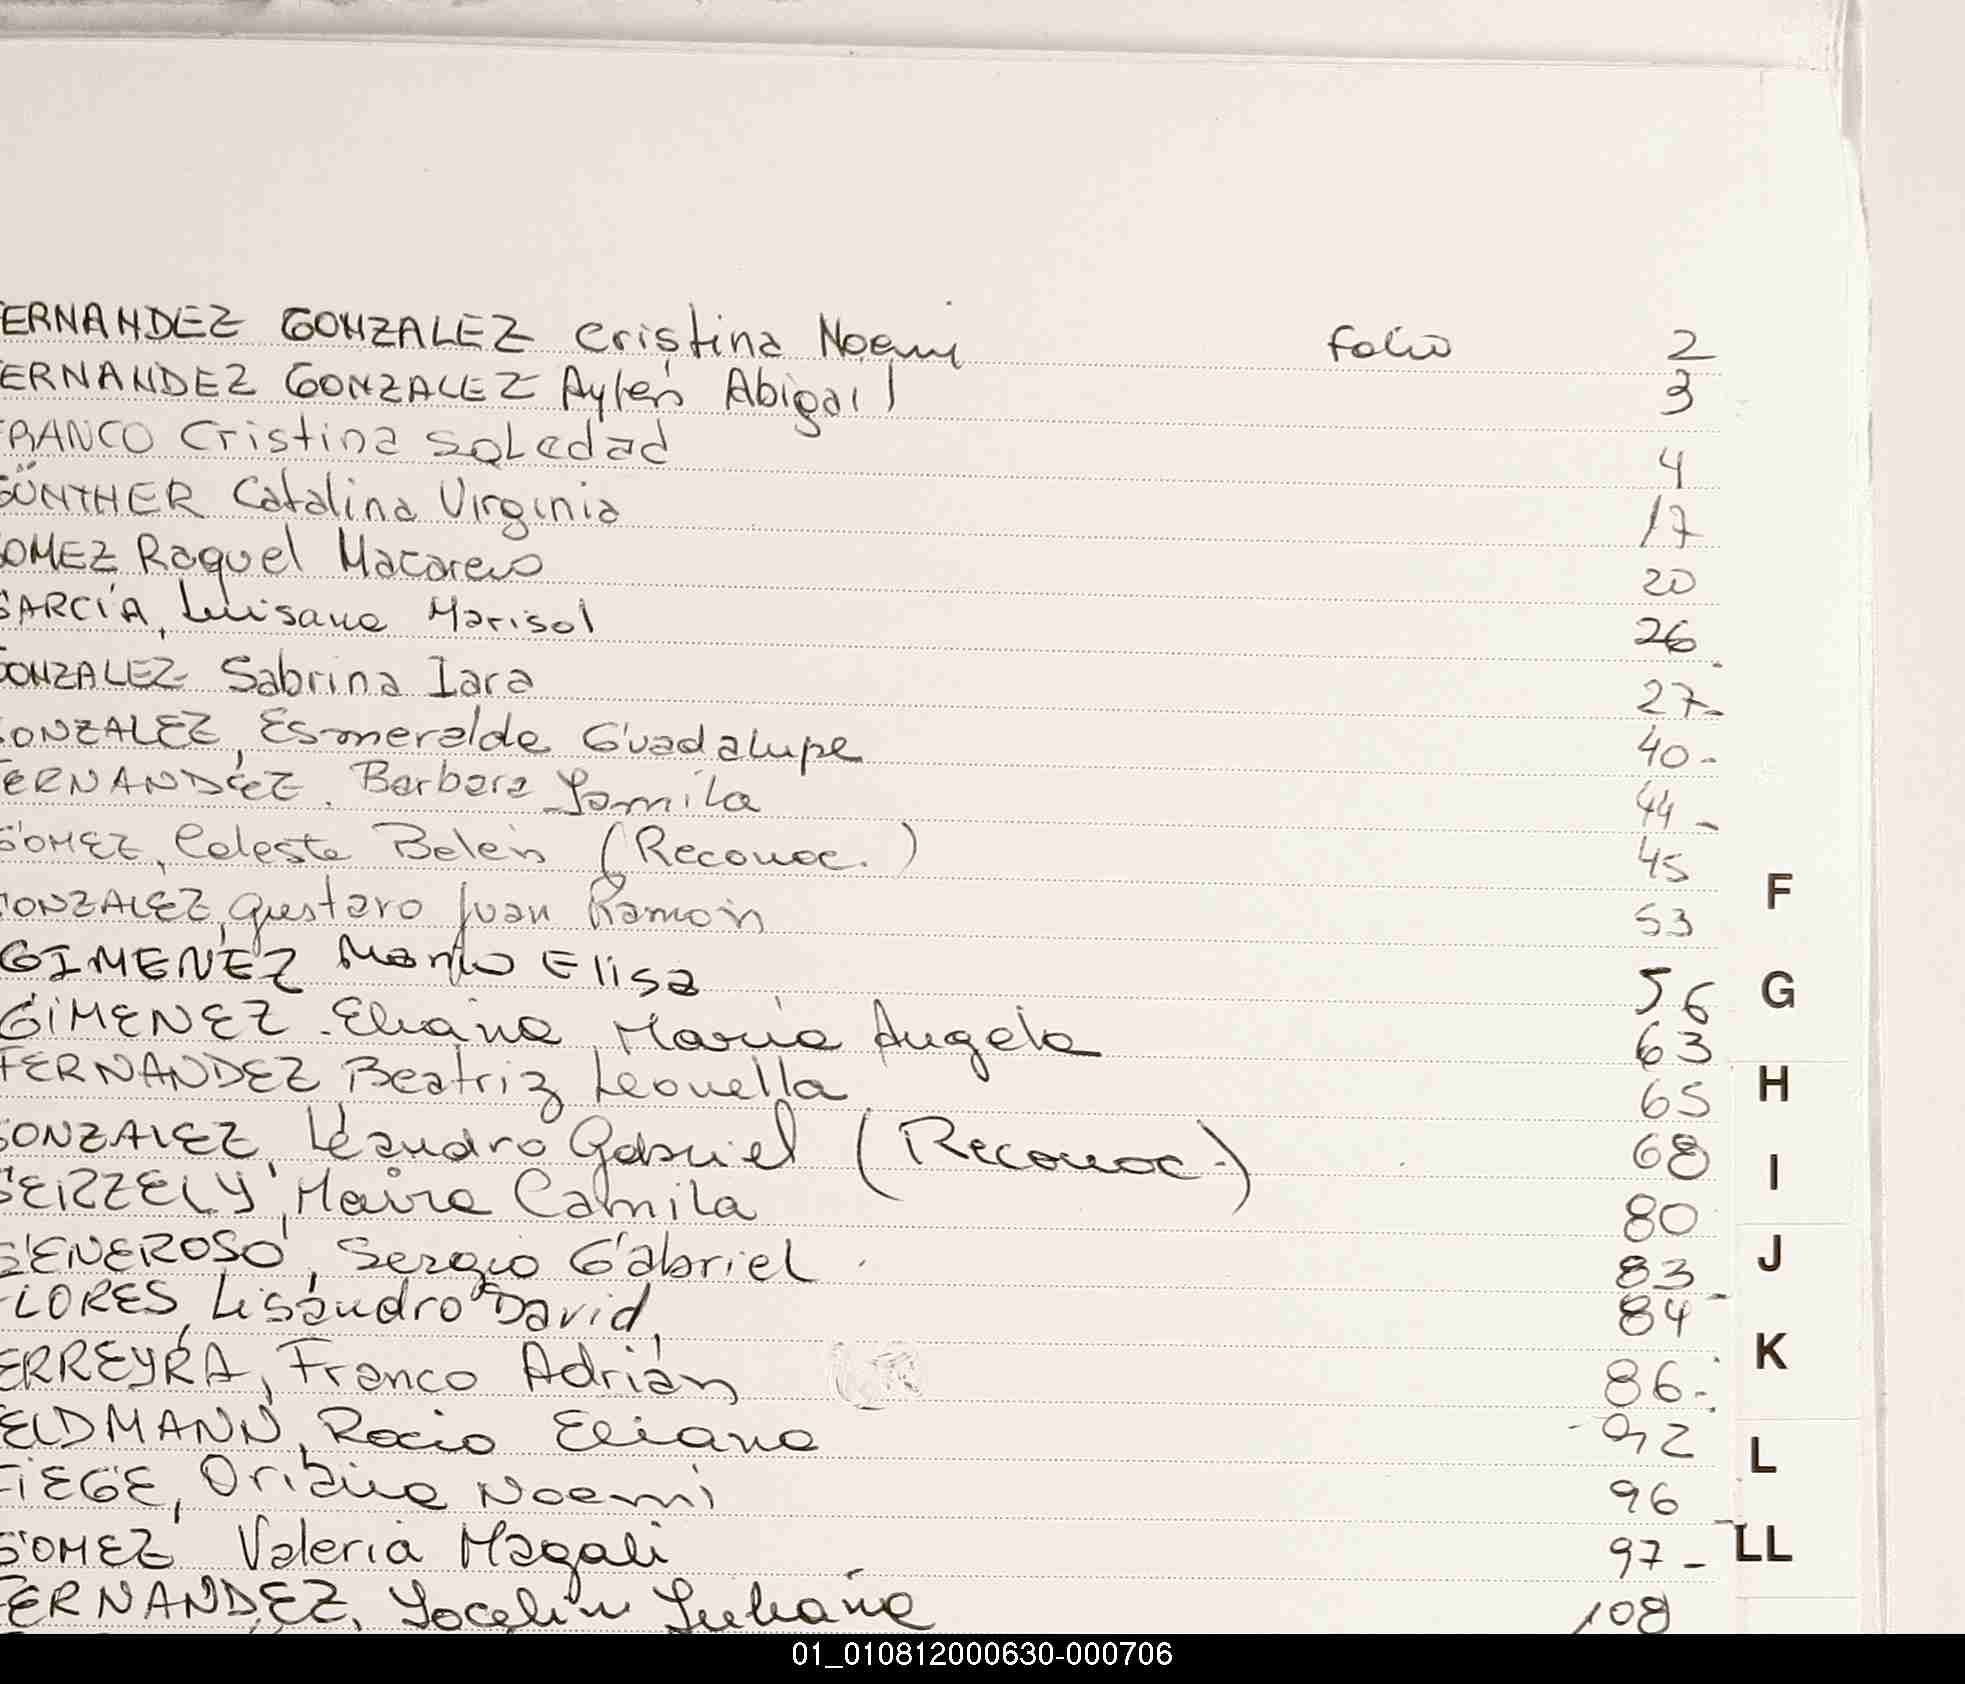 FERNANDEZ GONZALEZ Cristina Noemi folio 2
FERNANDEZ GONZALEZ Aylén Abigail 3
FRANCO Cristina Soledad 4
GÜNTHER Catalina Virginia 17
GOMEZ Raquel Macarena 20
GARCÍA, Luisana Marisol 26
GONZALEZ Sabrina Iara 27-
GONZALEZ, Esmeralda Guadalupe 40-
FERNANDEZ, Barbara Yamila 44-
GOMEZ, Celeste Belén (Reconoc.) 45
GONZALEZ, Gustavo Juan Ramón 53
GIMENEZ Elisa 56
GIMENEZ Eliana María Angela 63
FERNANDEZ Beatriz Leonella 65
GONZALEZ, Leandro Gabriel (Reconoc.) 68
GERZELY, Maira Camila 80
GENEROSO, Sergio Gabriel 83
FLORES, Lisandro David 84
FERREYRA, Franco Adrián 86-
FELDMANN, Rocio Eliana 92
FIEGE, Oriana Noemi 96
GOMEZ Valeria Magali 97-
FERNANDEZ, Yocelin Juliana 108
F
G
H
I
J
K
L
LL
01_010812000630-000706